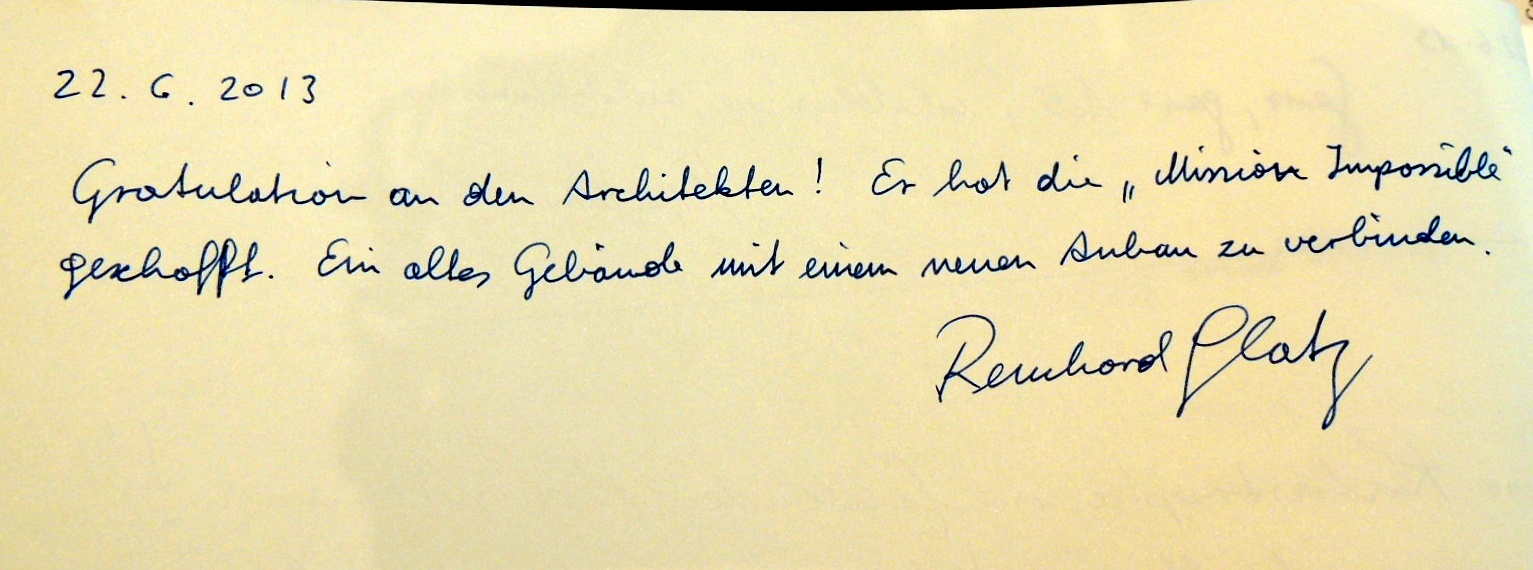 22. 6. 2013
Gratulation an den Architekten! Er hat die „Mission Impossible“
geschafft. Ein altes Gebäude mit einem neuen Anbau zu verbinden.
Reinhard Glatz